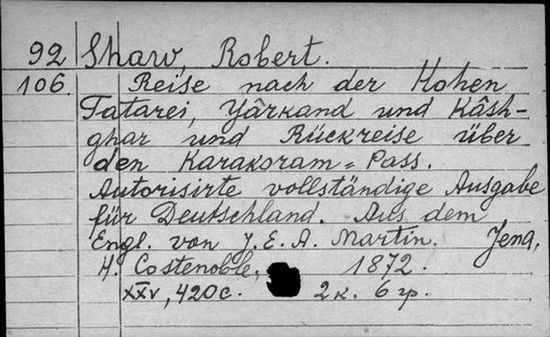 92 Shaw, Robert.
106. Reise nach der Hohen
Tatarei, Yârkand und Kâsh-
ghar und Rückreise über
den Karakoram=Pass.
Autorisirte vollständige Ausgabe
für Deutschland. Aus dem
Engl. von J. E. A. Martin. Jena,
H. Costenoble, 1872.
XXV, 420 с. 2 к. 6 гр.